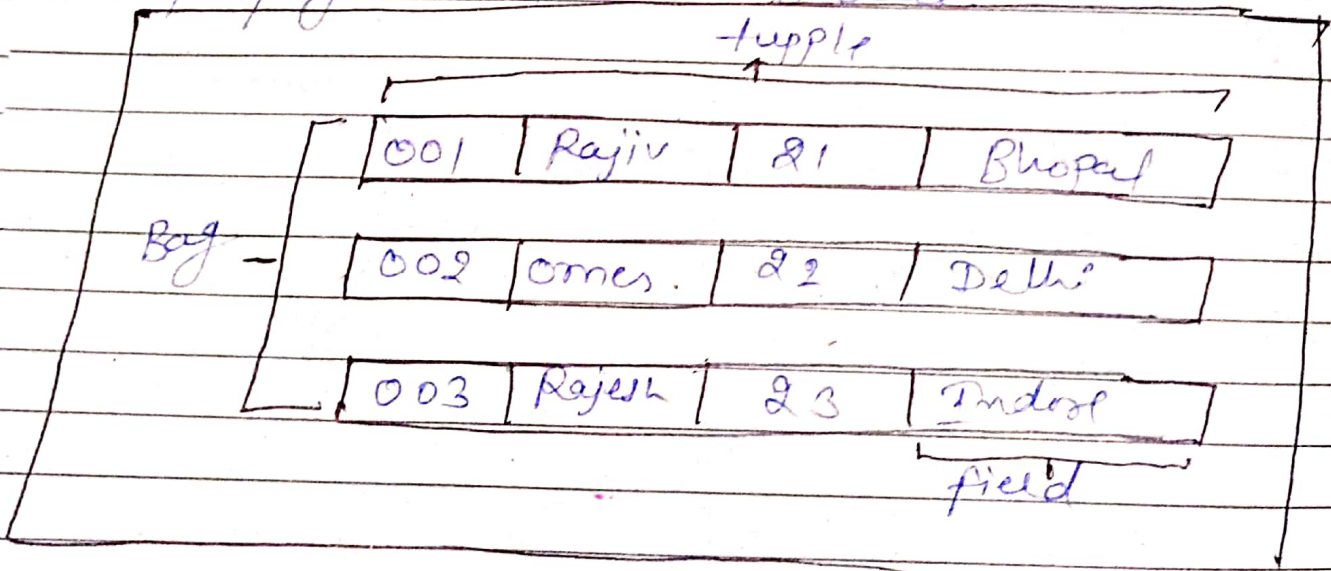 tupple
001 Rajiv 21 Bhopal
Bag - 002 omes. 22 Delhi
003 Rajesh 23 Indore
field